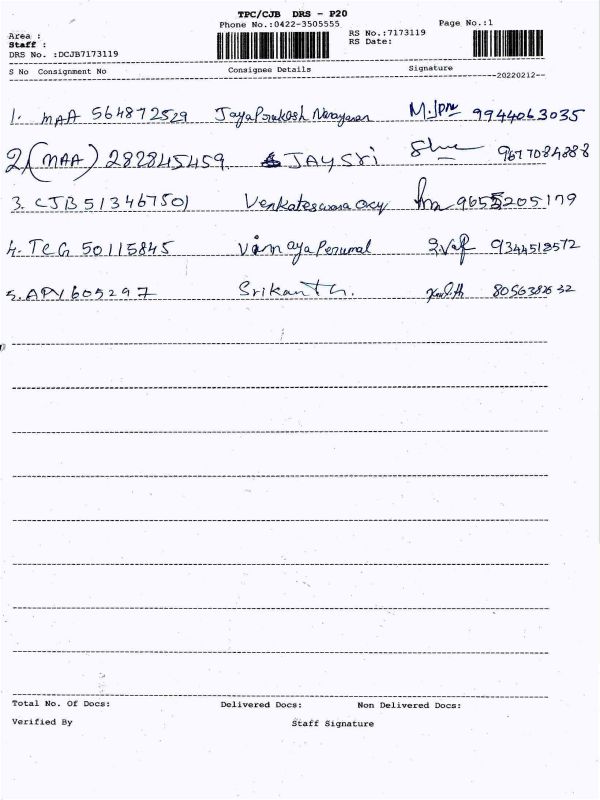 TPC/CJB DRS - P20
Phone No.:0422-3505555
Page No.:1
Area :
RS No.:7173119
Staff :
RS Date:
DRS No. :DCJB7173119
S No Consignment No Consignee Details Signature
--20220212--
1. MAA 564872529 JayaPrakash Narayanan M.Jpn 9944063035
2 (MAA) 282845459 JAYSRi 9677084888
3. CJB 51346750) Venkateswara oxy 9655205179
4. TCG 50115845 Vinaya Perumal 9344518572
5. APY 605297 Srikanth. 8056382632
Total No. Of Docs: Delivered Docs: Non Delivered Docs:
Verified By Staff Signature